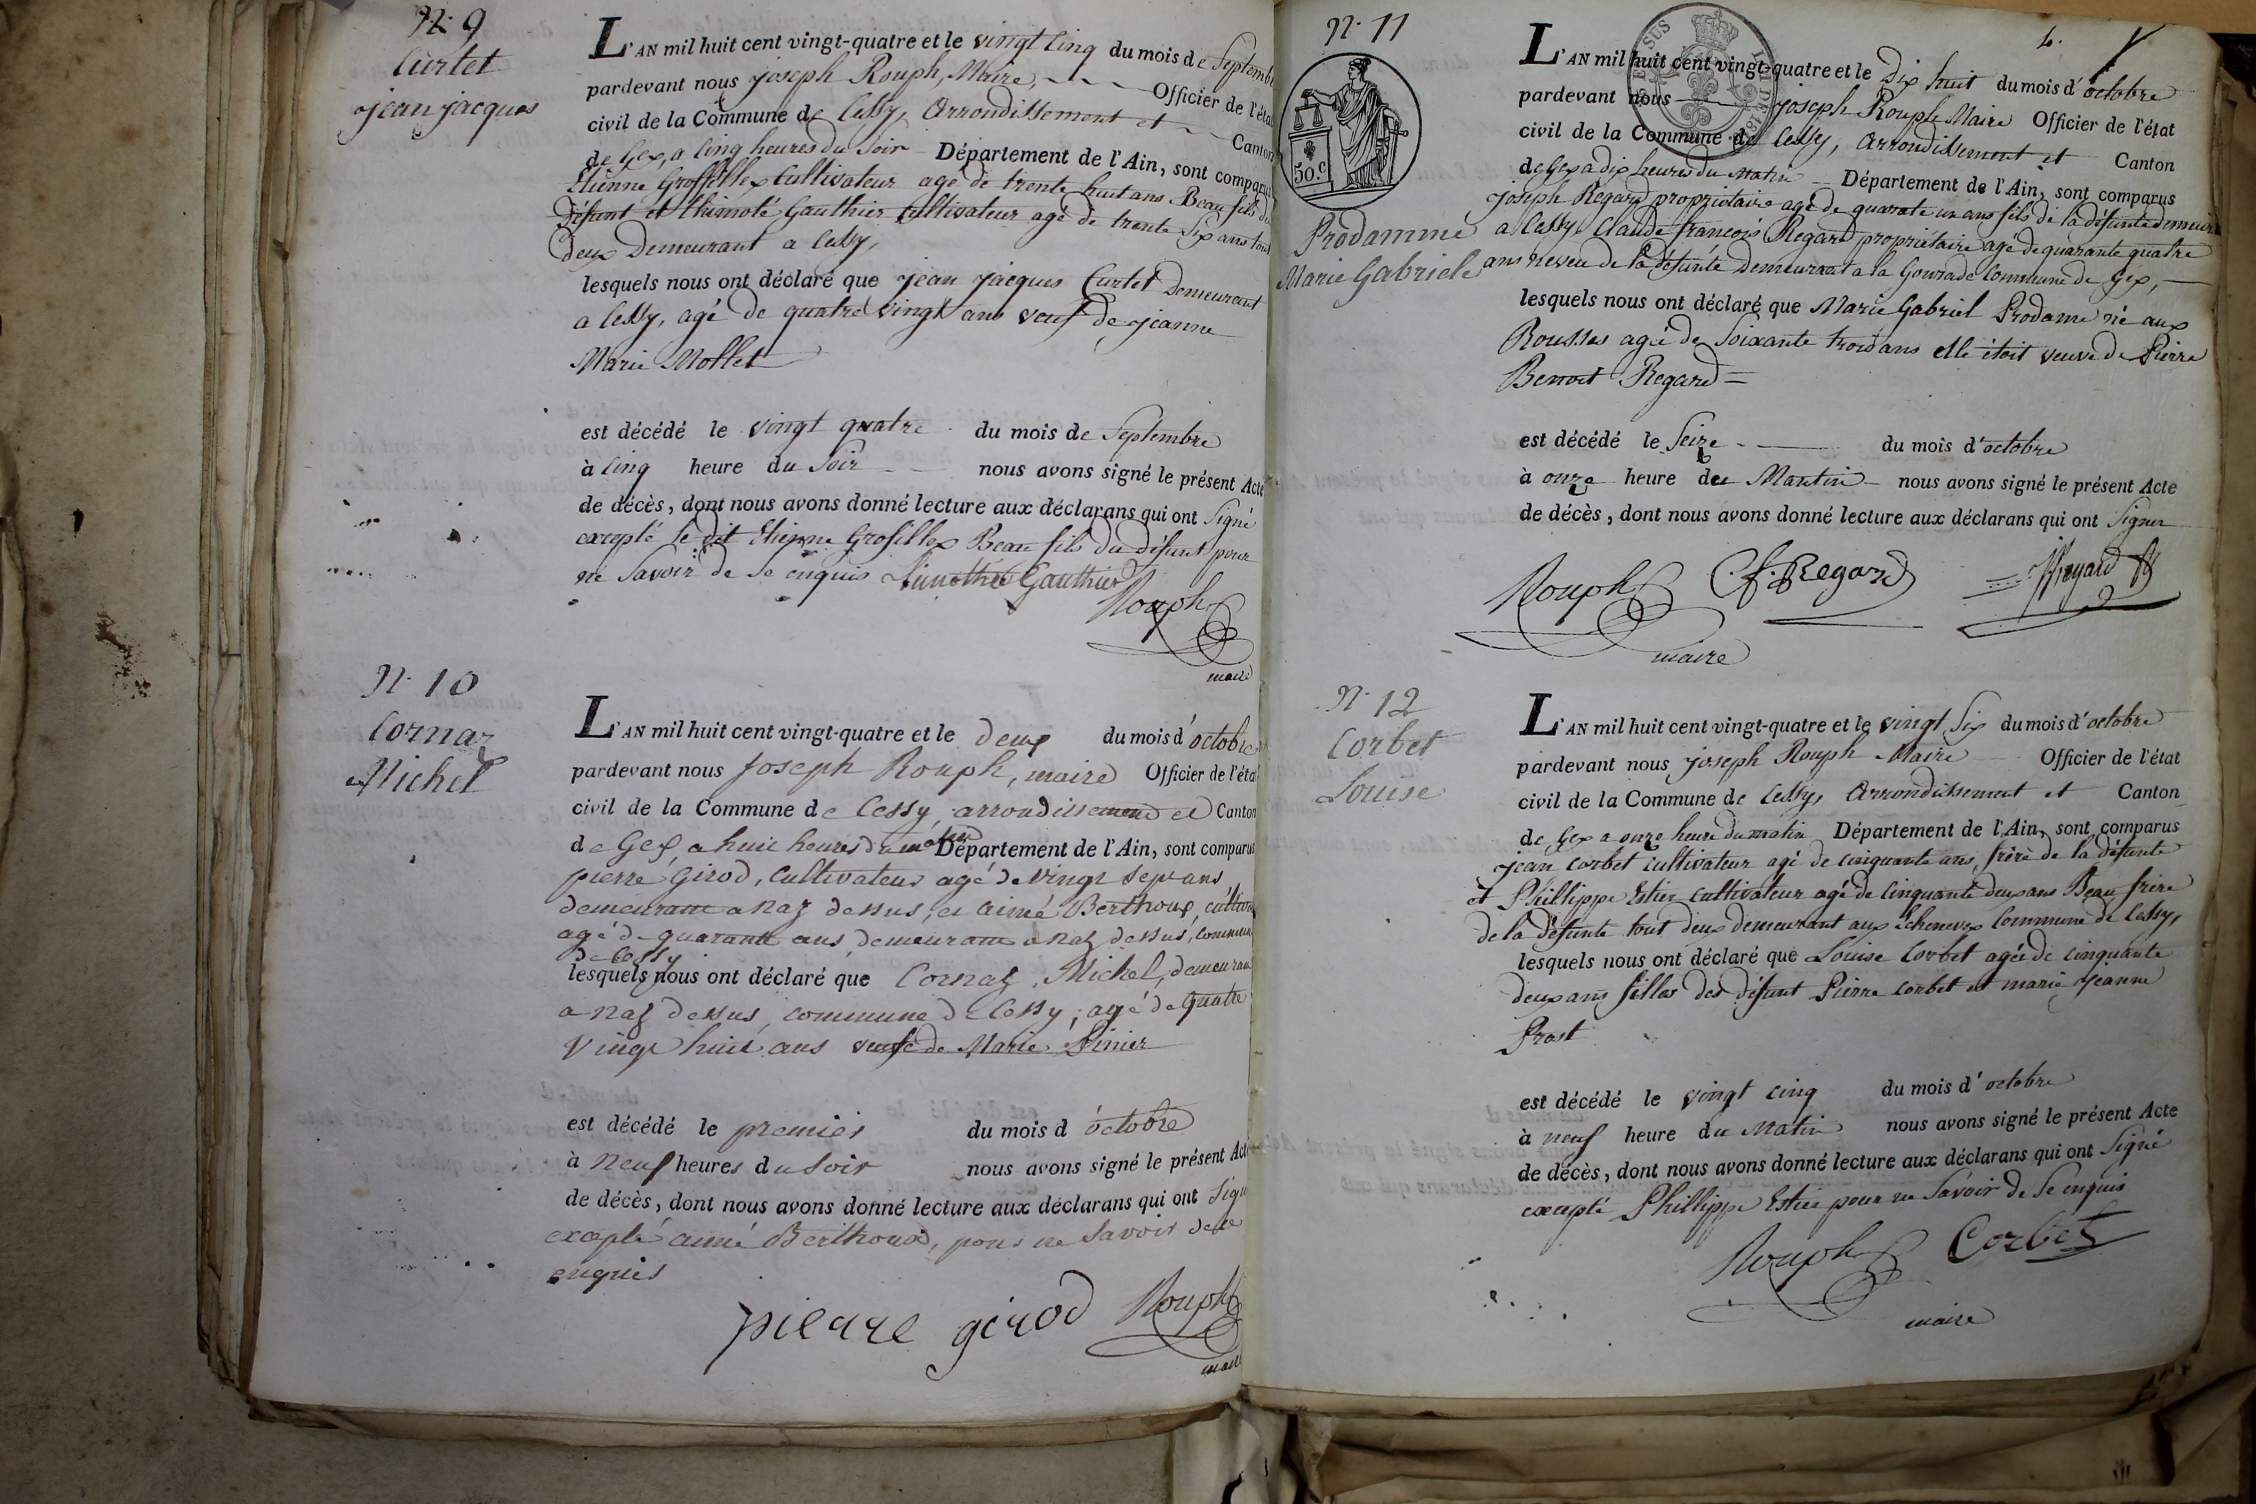 N. 9
Curtet
jean jacques
L'AN mil huit cent vingt-quatre et le vingt Cinq du mois de Septembre
pardevant nous joseph Rouph, Maire, Officier de l'état
civil de la Commune de Cessy, Arrondissement et Canton
de Gex, a Cinq heures du Soir Département de l'Ain, sont comparus
Etienne Grosfillex Cultivateur agé de trente huit ans Beau fils du
défunt et thimoté Gauthier Cultivateur agé de trente Six ans tous
deux Demeurant a Cessy,
lesquels nous ont déclaré que jean jacques Curtet Demeurant
a Cessy, agé de quatre Vingt ans veuf de jeanne
Marie Mollet
est décédé le vingt quatre du mois de Septembre
à Cinq heure du Soir nous avons signé le présent Acte
de décès, dont nous avons donné lecture aux déclarans qui ont Signé
excepté le dit Etienne Grosfillex Beau fils du défunt pour
ne Savoir de Se enquis Timothée Gauthier
Rouph
maire
N. 10
Cornaz
Michel
L'AN mil huit cent vingt-quatre et le deux du mois d'octobre
pardevant nous Joseph Rouph, maire Officier de l'état
civil de la Commune de Cessy, arrondissement et Canton
de Gex, a huit heures du matin Département de l'Ain, sont comparus
pierre Girod, Cultivateur agé de vingt sept ans
demeurant a naz dessus, et aimé Berthoux, cultiv
agé de quarante ans demeurant a naz dessus, commune
de Cessy
lesquels nous ont déclaré que Cornaz, Michel, demeurant
a naz dessus, commune de Cessy, agé de quatre
Vingt huit ans veuf de Marie Pinier
est décédé le premier du mois d'octobre
à neuf heures du soir nous avons signé le présent Acte
de décès, dont nous avons donné lecture aux déclarans qui ont Signé
excepté aimé Berthoux, pour ne Savoir de ce
enquis
pierre girod Rouph
maire
N. 11
4.
50.C
Prodamme
Marie Gabriele
L'AN mil huit cent vingt-quatre et le Dix huit du mois d'octobre
pardevant nous joseph Rouph Maire Officier de l'état
civil de la Commune de Cessy, Arrondissement et Canton
de Gex a dix heures du Matin Département de l'Ain, sont comparus
joseph Regard propriétaire agé de quarante un ans fils de la défunte demeurt
a Cessy, Claude françois Regard propriétaire agé de quarante quatre
ans neveu de la défunte Demeurant a la Gourade Commune de Gex,
lesquels nous ont déclaré que Marie Gabriel Prodame né aux
Rousses agé de Soixante trois ans elle étoit veuve de Pierre
Benoit Regard =
est décédé le Seize du mois d'octobre
à onze heure du Mantin nous avons signé le présent Acte
de décès, dont nous avons donné lecture aux déclarans qui ont Signer
Rouph C.f. Regard J Regard
maire
N. 12
Corbet
Louise
L'AN mil huit cent vingt-quatre et le vingt Six du mois d'octobre
pardevant nous joseph Rouph Maire Officier de l'état
civil de la Commune de Cessy, Arrondissement et Canton
de Gex a onze heure du matin Département de l'Ain, sont comparus
jean Corbet Cultivateur agé de cinquante ans, frère de la défunte
et Phillippe Estier Cultivateur agé de Cinquante deux ans Beau frère
de la défunte tout deux demeurant aux Echenevex Commune de Cessy,
lesquels nous ont déclaré que Louise Corbet agée de cinquante
deux ans filles des défunt Pierre Corbet et marie jeanne
Prost
est décédé le vingt cinq du mois d'octobre
à neuf heure du Matin nous avons signé le présent Acte
de décès, dont nous avons donné lecture aux déclarans qui ont Signé
excepté Phillippe Estier pour ne Savoir de Se enquis
Rouph Corbet
maire